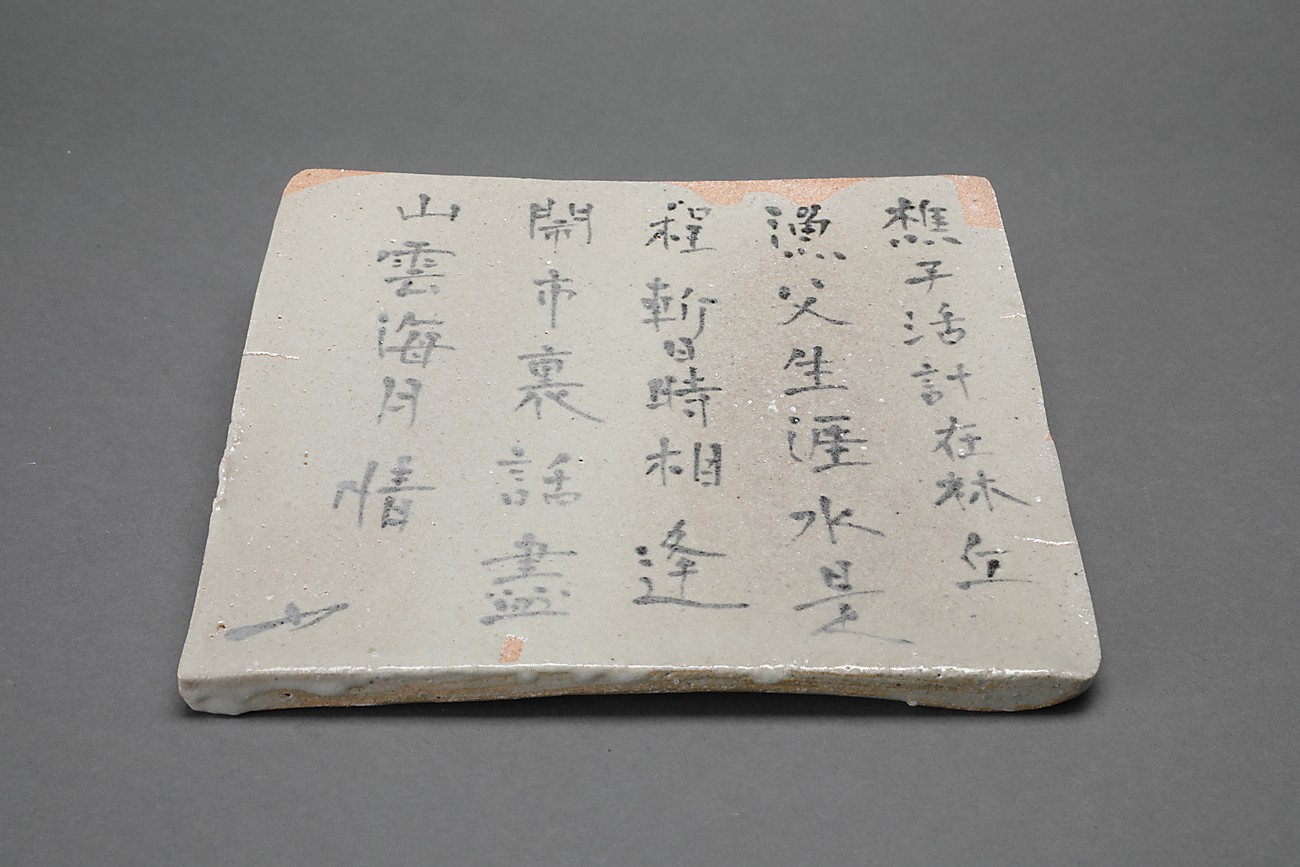 樵子活計在林丘
漁父生涯水是
程暫時相逢
閙市裏話盡
山雲海月情